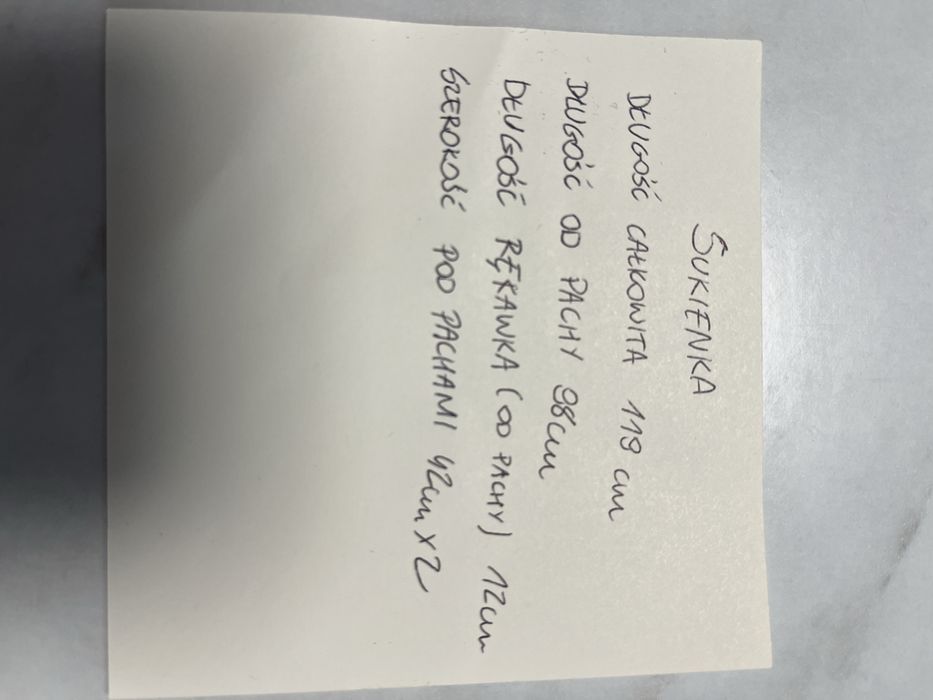 SUKIENKA
DŁUGOŚĆ CAŁKOWITA 119 cm
DŁUGOŚĆ OD PACHY 98cm
DŁUGOŚĆ RĘKAWKA (OD PACHY) 12cm
SZEROKOŚĆ POD PACHAMI 42cm X 2